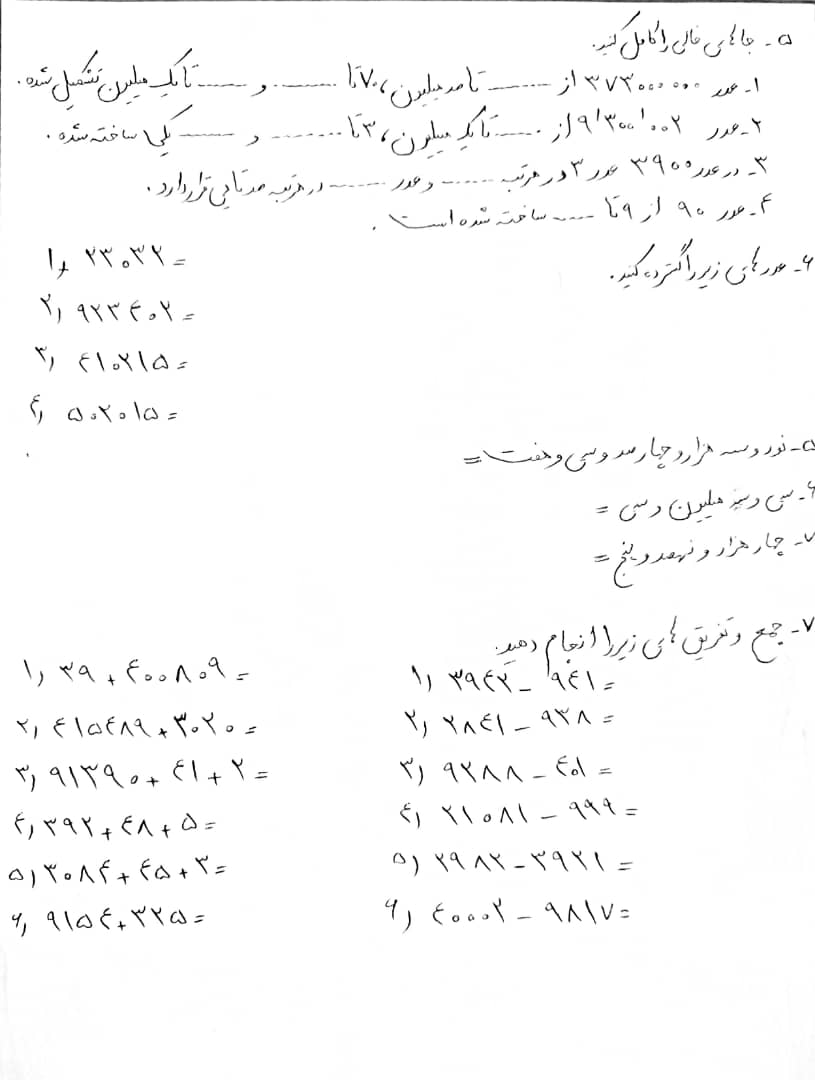 ۵- جاهای خالی را کامل کنید.
۱- عدد ۳۷۳۰۰۰۰۰۰ از ........ تا صد میلیون، ۷۰ تا ........ و ........ تا یک میلیون تشکیل شده.
۲- عدد ۹/۳۰۰/۰۰۲ از ........ تا یک میلیون، ۳ تا ........ و ........ یکی ساخته شده.
۳- در عدد ۳۹۰۰ عدد ۳ در مرتبه ........ و عدد ........ در مرتبه صدتایی قرار دارد.
۴- عدد ۹۰ از ۹ تا ........ ساخته شده است.
۶- عددهای زیر را گسترده کنید.
۱) ۲۳۰۳۲ =
۲) ۹۲۳۴۰۲ =
۳) ۴۱۰۲۱۵ =
۴) ۵۰۲۰۱۵ =
۵- نود و سه هزار و چهارصد و سی و هفت =
۶- سی و سه میلیون و سی =
۷- چهار هزار و نهصد و پنج =
۷- جمع و تفریق های زیر را انجام دهید.
۱) ۳۹ + ۴۰۰۸۰۹ =
۲) ۴۱۵۴۸۹ + ۳۰۲۰ =
۳) ۹۱۳۹۰ + ۴۱ + ۲ =
۴) ۳۹۲ + ۴۸ + ۵ =
۵) ۳۰۸۴ + ۴۵ + ۳ =
۶) ۹۱۵۴ + ۳۲۵ =
۱) ۳۹۴۲ - ۹۴۱ =
۲) ۲۸۴۱ - ۹۳۸ =
۳) ۹۲۸۸ - ۴۰۱ =
۴) ۲۱۰۸۱ - ۹۹۹ =
۵) ۲۹۸۲ - ۳۹۲۱ =
۶) ۴۰۰۰۲ - ۹۸۱۷ =